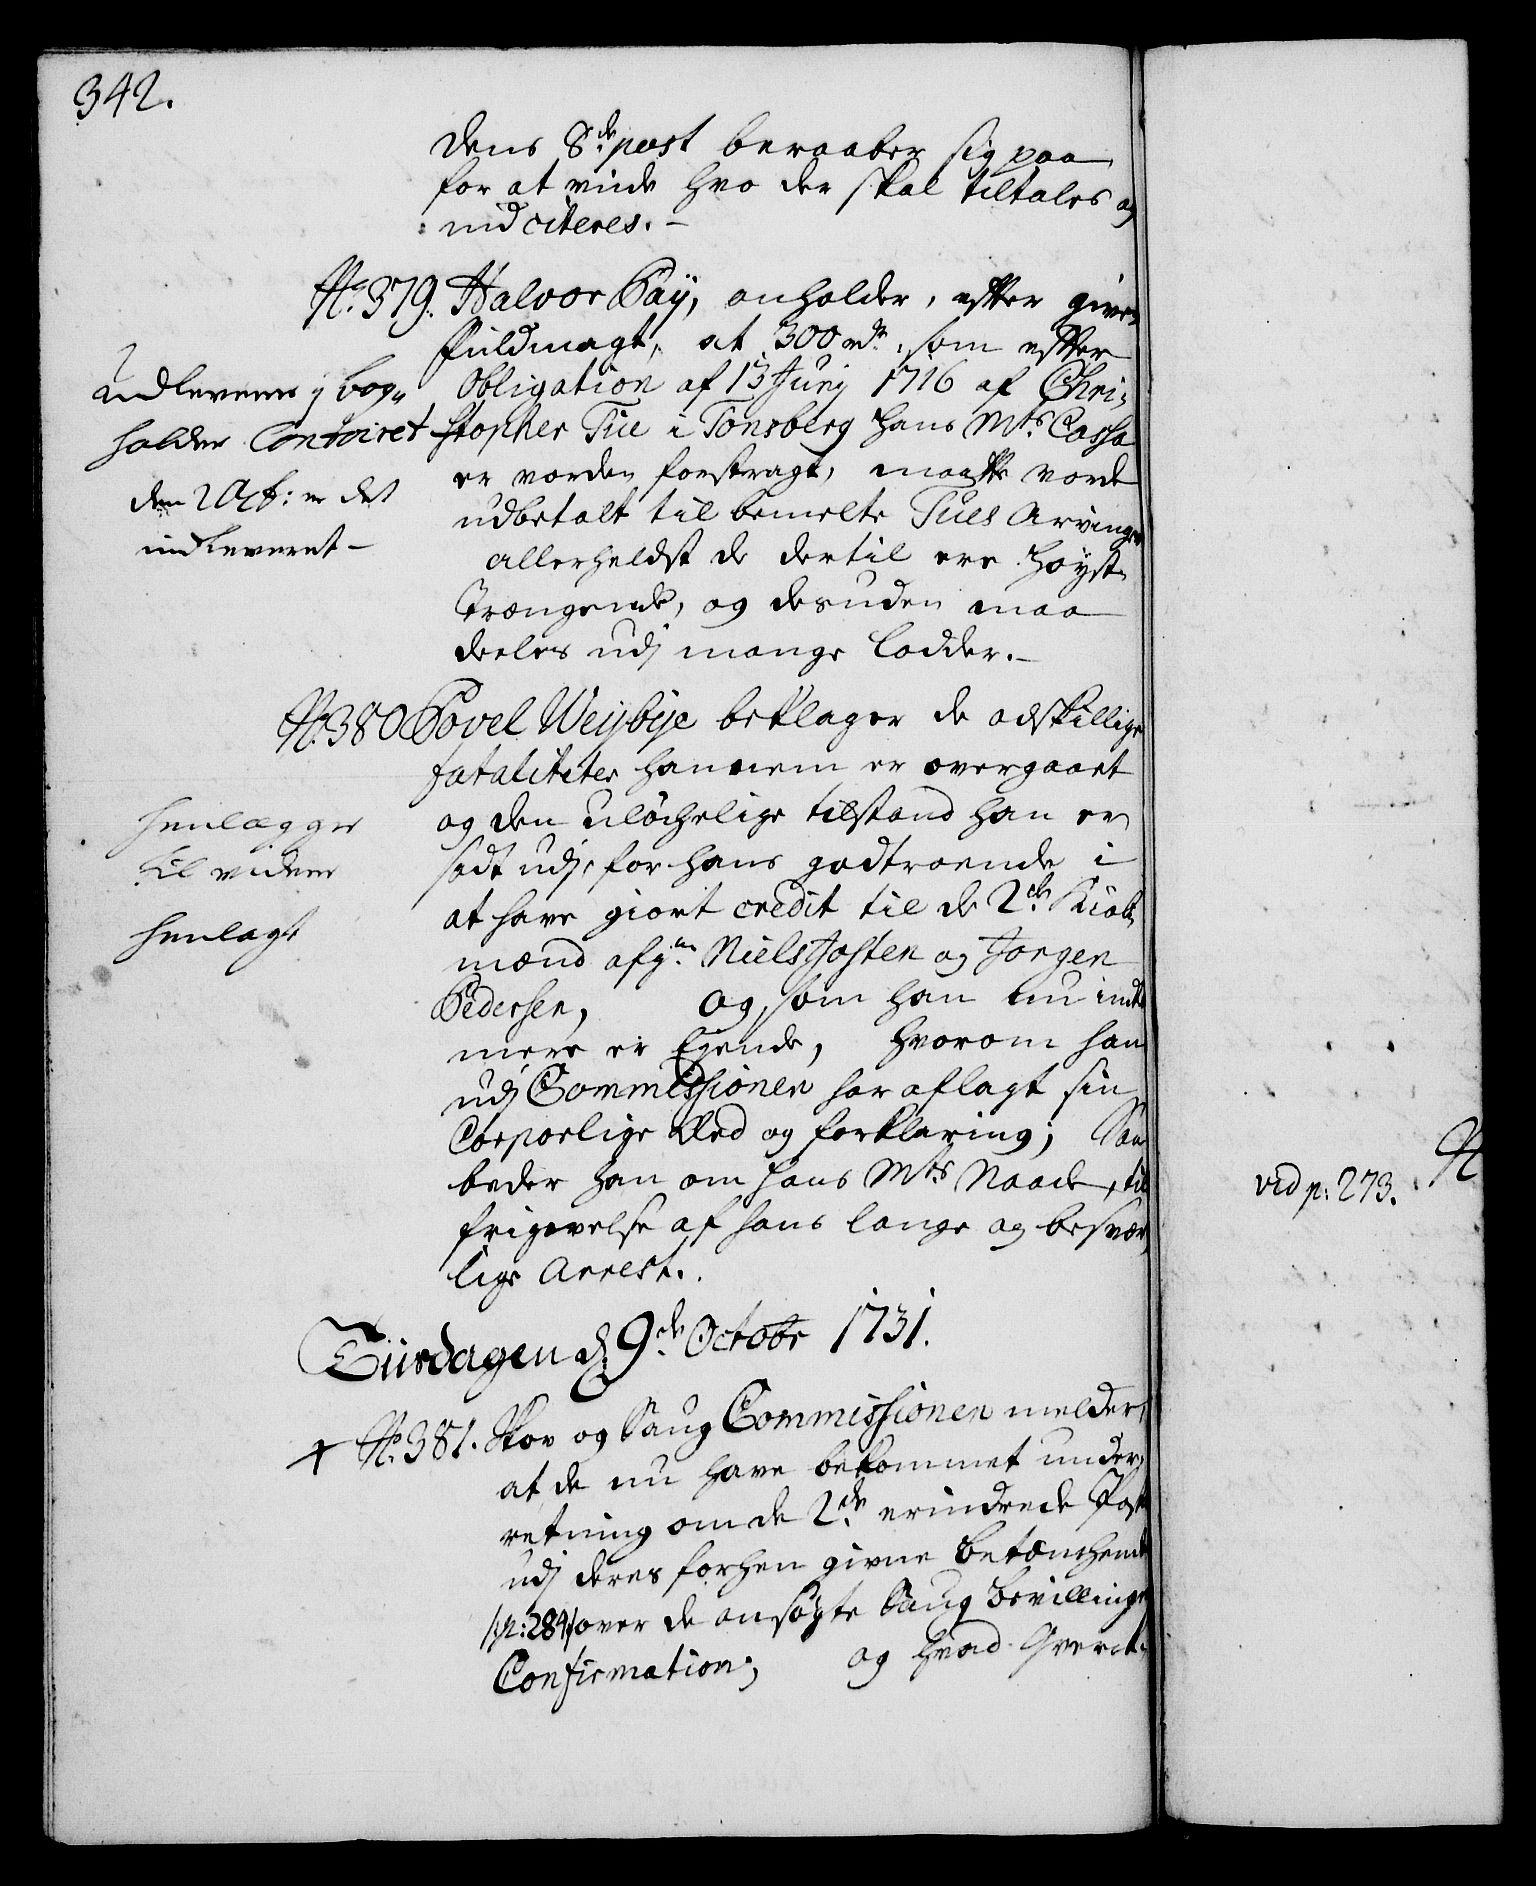 342.
dens 8de post beraaber sig paa
for at viide hvo der skal tiltales og
indciteres. –
No. 379. Halvor Paÿ, anholder, efter given
Fuldmagt, at 300 rdr. som efter
Obligation af 13 Junij 1716 af Chri-
stopher Tue i Tonsberg Hans Mts Cassa
er vorden forstragt, maatte vorde
udbetalt til bemelte Tues Arvinger
allerheldst de dertil ere høyst-
trængende, og desuden maa
deeles udj mange Lodder. –
Udleveres j bog-
holder Contoiret
den 2 Octb: er det
indleveret –
No. 380 Povel Weÿbÿe beklager de adskillige
fataliteter hannem er overgaaet
og den ulöchelige tilstand han er
sadt udj, for hans godtroende i
at have giort credit til de 2de Kiøb-
mænd afgne Niels Josten og Jorgen
Pedersen, og som han nu intet
mere er Eyende, hvorom han
udj Commissionen har aflagt sin
Corporlige Æed og forklaring; Saa
beder han om Hans Mts Naade, til
frigivelse af hans lange og besvær-
lige Arrest.
henlægges
til videre
henlagt
Tiirsdagen d. 9de Octobr 1731.
+ No. 381. Skov og Saug Commissionen melder,
at de nu have bekommet under-
retning om de 2de erindrede Poster
udj deres forhen givne betænchende
/:p: 284:/ over de ansøgte Saug Bevillinger
Confirmation; og hvad
vid p: 273.
N